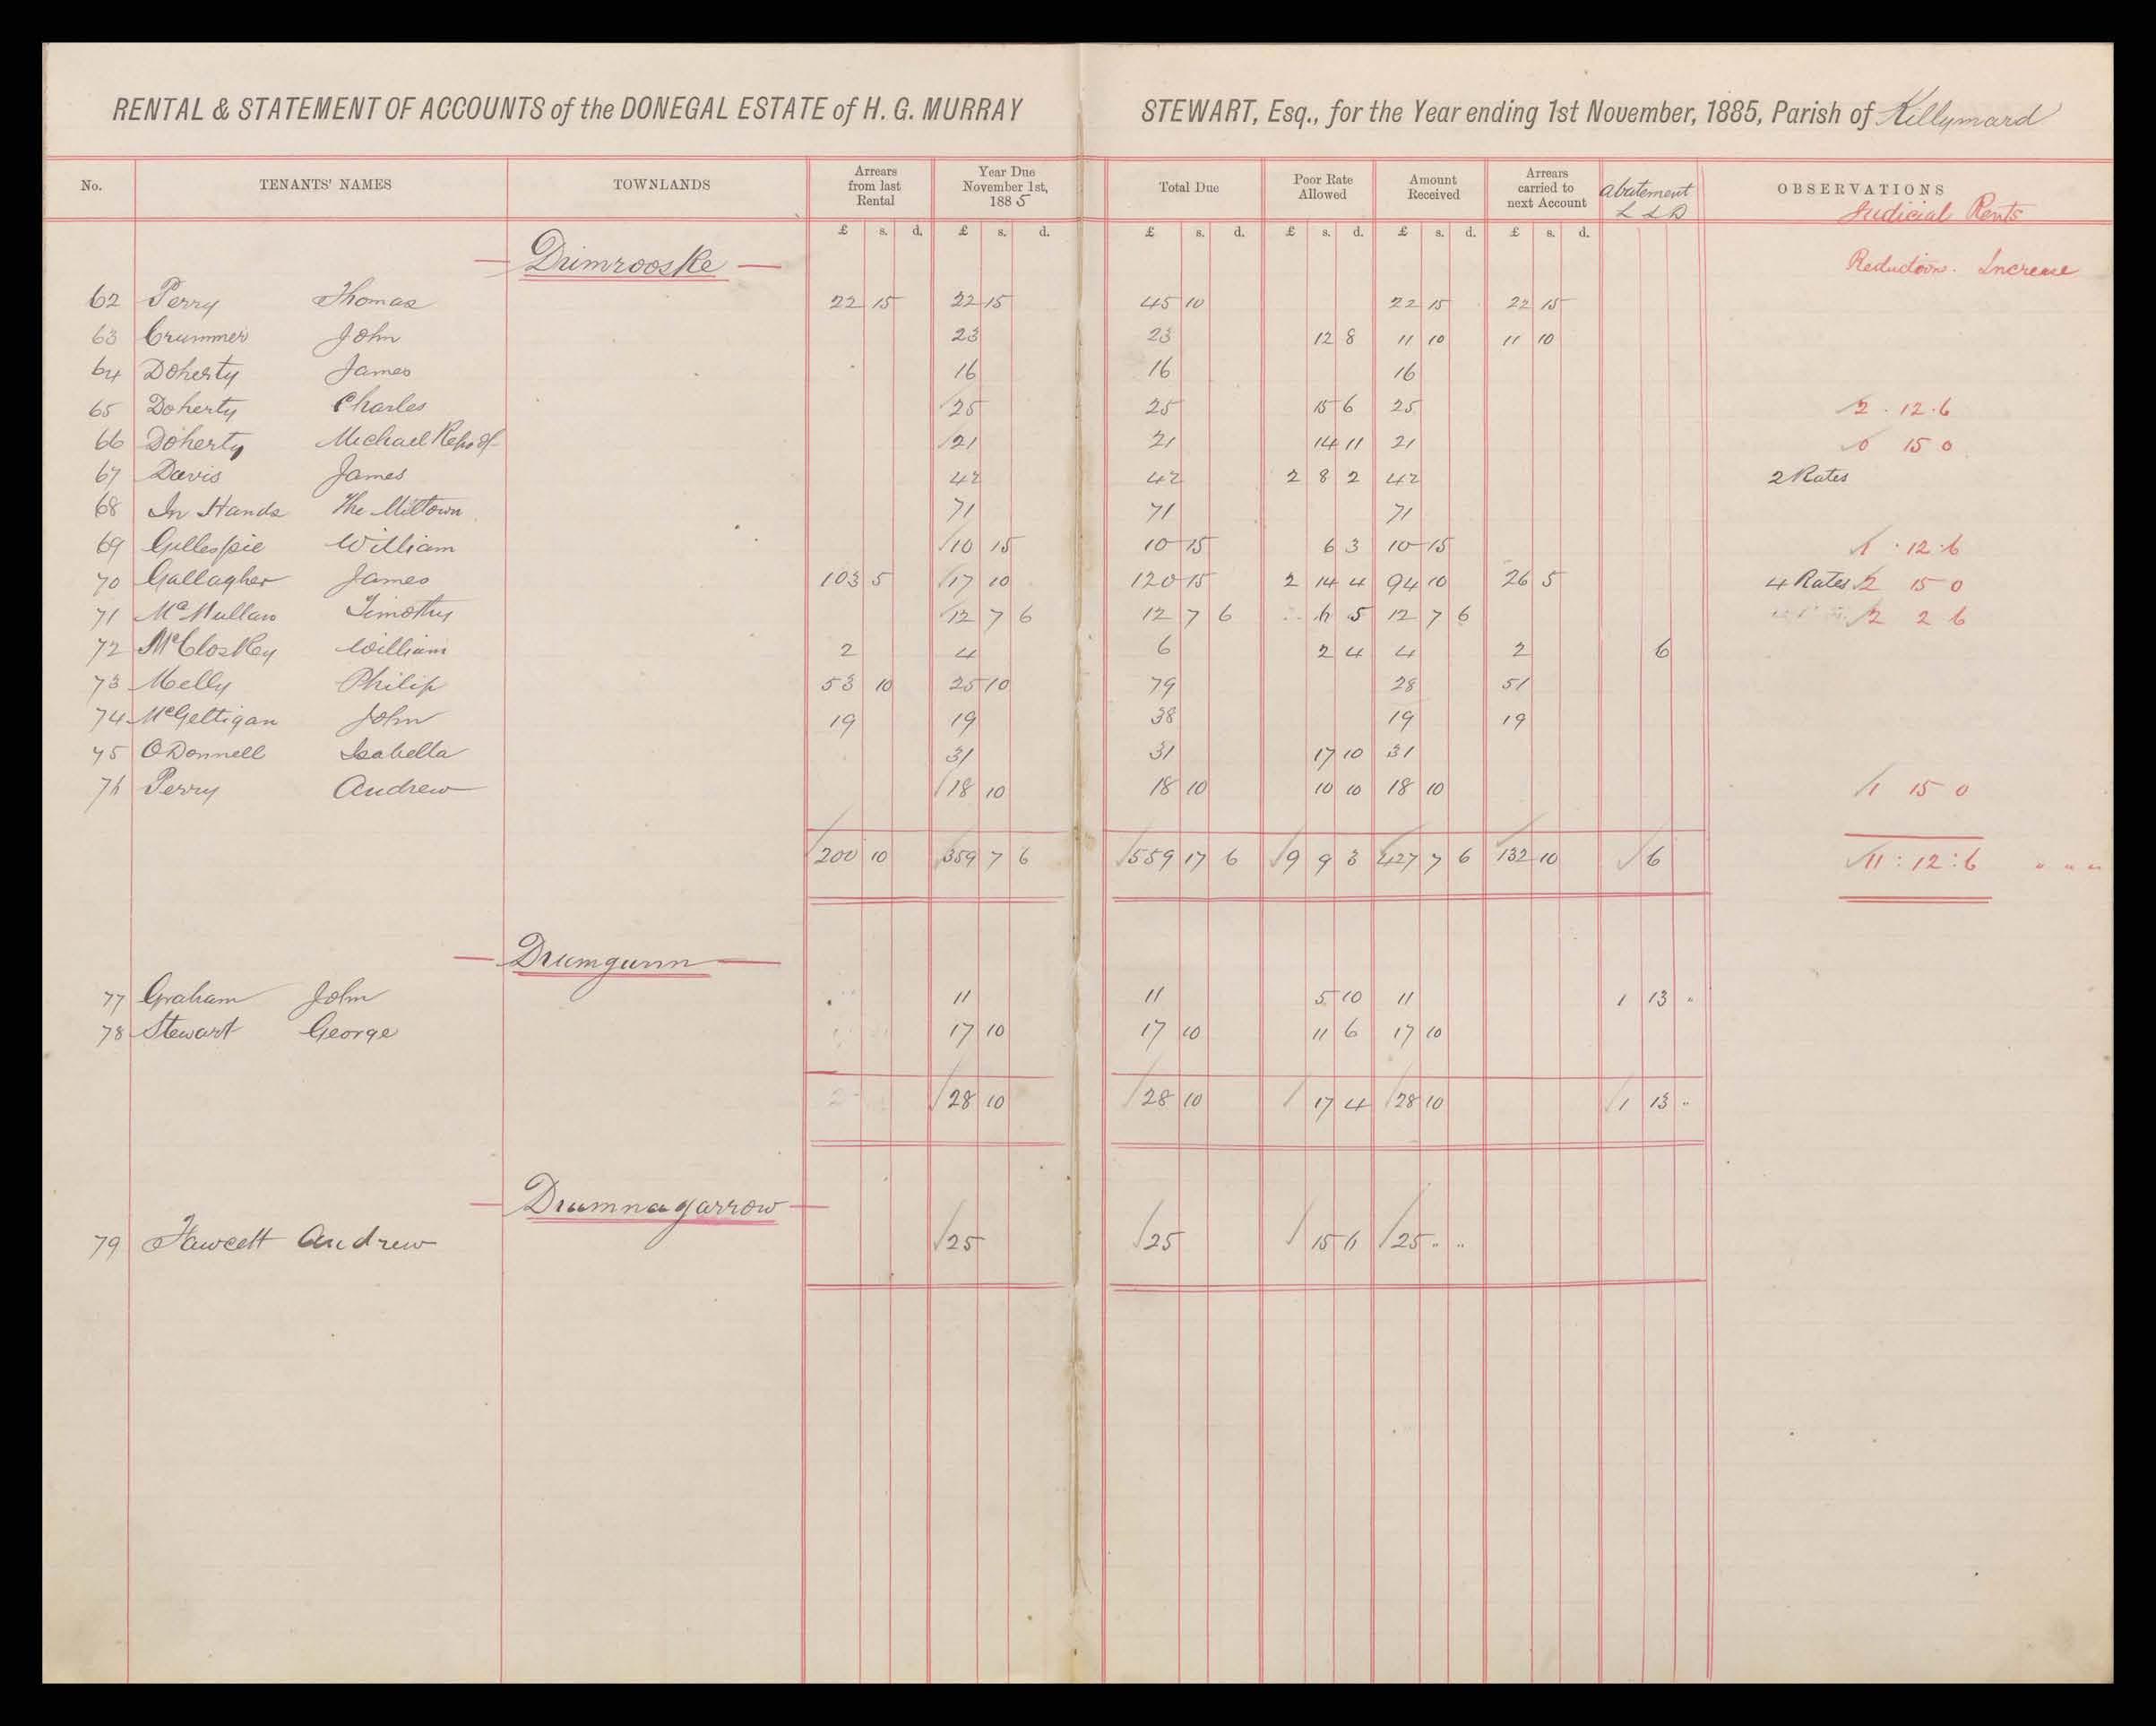 RENTAL & STATEMENT OF ACCOUNTS of the DONEGAL ESTATE of H. G. MURRAY STEWART, Esq., for the Year ending 1st November, 1885, Parish of Killymard
No. TENANTS' NAMES TOWNLANDS Arrears from last Rental Year Due November 1st, 1885 Total Due Poor Rate Allowed Amount Received Arrears carried to next Account Abatement £ s D OBSERVATIONS Judicial Rents
£ s. d. £ s. d. £ s. d. £ s. d. £ s. d. £ s. d.
— Drimrooske — Reductions. Increase
62 Perry Thomas 22 15 22 15 45 10 22 15 22 15
63 Crummer John 23 23 12 8 11 10 11 10
64 Doherty James 16 16 16
65 Doherty Charles 25 25 15 6 25 2 . 12 . 6
66 Doherty Michael Reps of 21 21 14 11 21 0 15 0
67 Davis James 42 42 2 8 2 42 2 Rates
68 In Hands The Milltown 71 71 71
69 Gillespie William 10 15 10 15 6 3 10 15 1 . 12 . 6
70 Gallagher James 103 5 17 10 120 15 2 14 4 94 10 26 5 4 Rates 2 15 0
71 McMullan Timothy 12 7 6 12 7 6 6 5 12 7 6 2 2 6
72 McCloskey William 2 4 6 2 4 4 2 6
73 Melly Philip 53 10 25 10 79 28 51
74 McGettigan John 19 19 38 19 19
75 O'Donnell Isabella 31 31 17 10 31
76 Perry Andrew 18 10 18 10 10 10 18 10 1 15 0
200 10 359 7 6 559 17 6 9 9 3 427 7 6 132 10 6 11 : 12 : 6 " " "
— Drumgunn —
77 Graham John 11 11 5 10 11 1 13 "
78 Stewart George 17 10 17 10 11 6 17 10
28 10 28 10 17 4 28 10 1 13 "
— Drumnagarrow —
79 Fawcett Andrew 25 25 15 6 25 " "